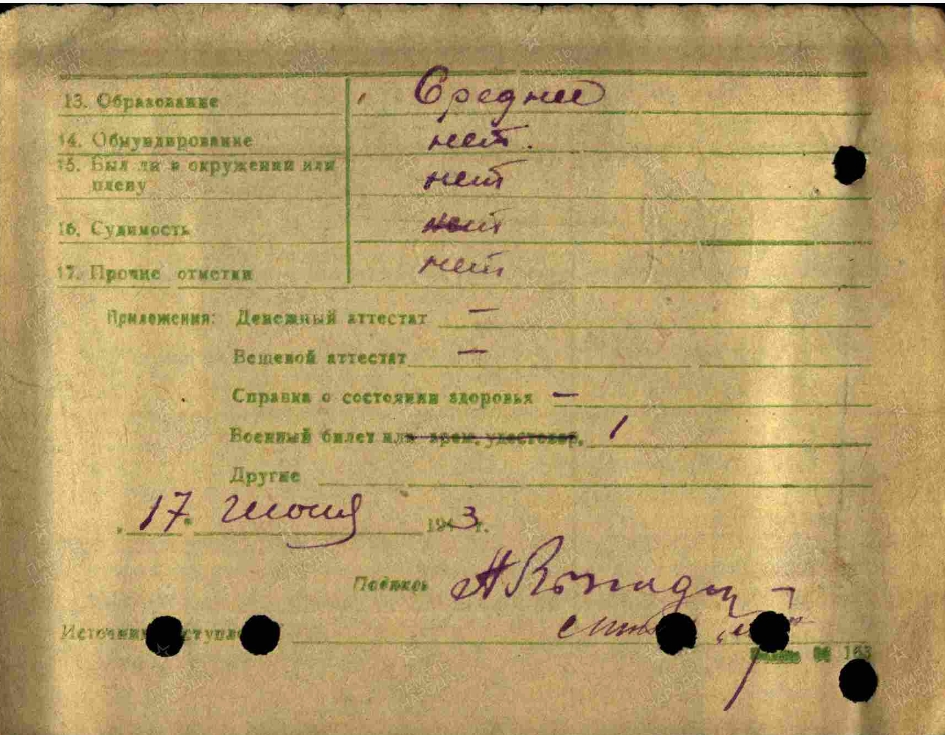 13. Образование Среднее
14. Обмундирование нет.
15. Был ли в окружении или
плену нет
16. Судимость нет
17. Прочие отметки нет
Приложения: Денежный аттестат —
Вещевой аттестат —
Справка о состоянии здоровья —
Военный билет или врем. удостовер. 1
Другие
„17“ июня 1943 г.
Подпись